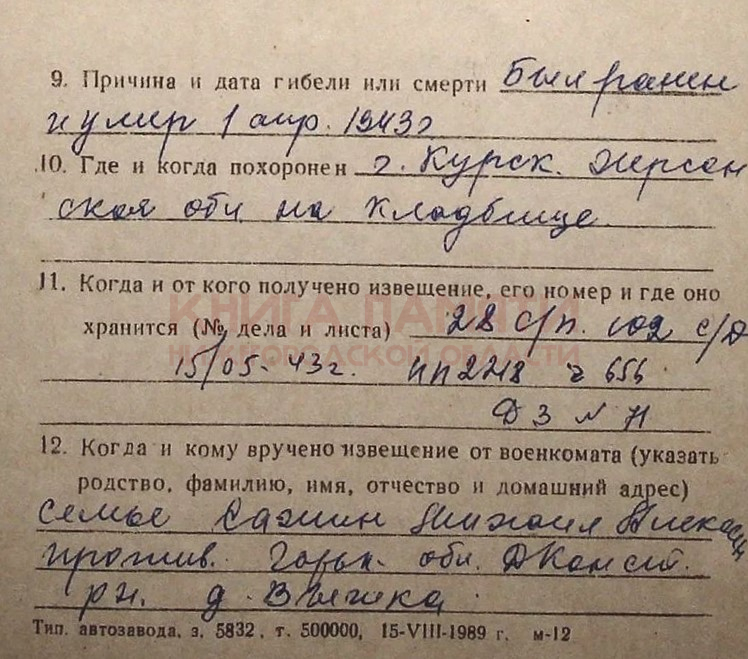 9. Причина и дата гибели или смерти Был ранен
и умер 1 апр. 1943г
10. Где и когда похоронен г. Курск. Херсон
ская обл. на Кладбище
11. Когда и от кого получено извещение, его номер и где оно
КНИГА ПАМЯТИ
хранится (№ дела и листа) 28 с/п. 102 с/д
НИЖЕГОРОДСКОЙ ОБЛАСТИ
15/05-43г. ч 656
Д 3 N
12. Когда и кому вручено извещение от военкомата (указать
родство, фамилию, имя, отчество и домашний адрес)
семье Михаил
прожив. Горьк. обл. ДКонст.
рн. д.
Тип. автозавода, з. 5832, т. 500000, 15-VIII-1989 г. м-12